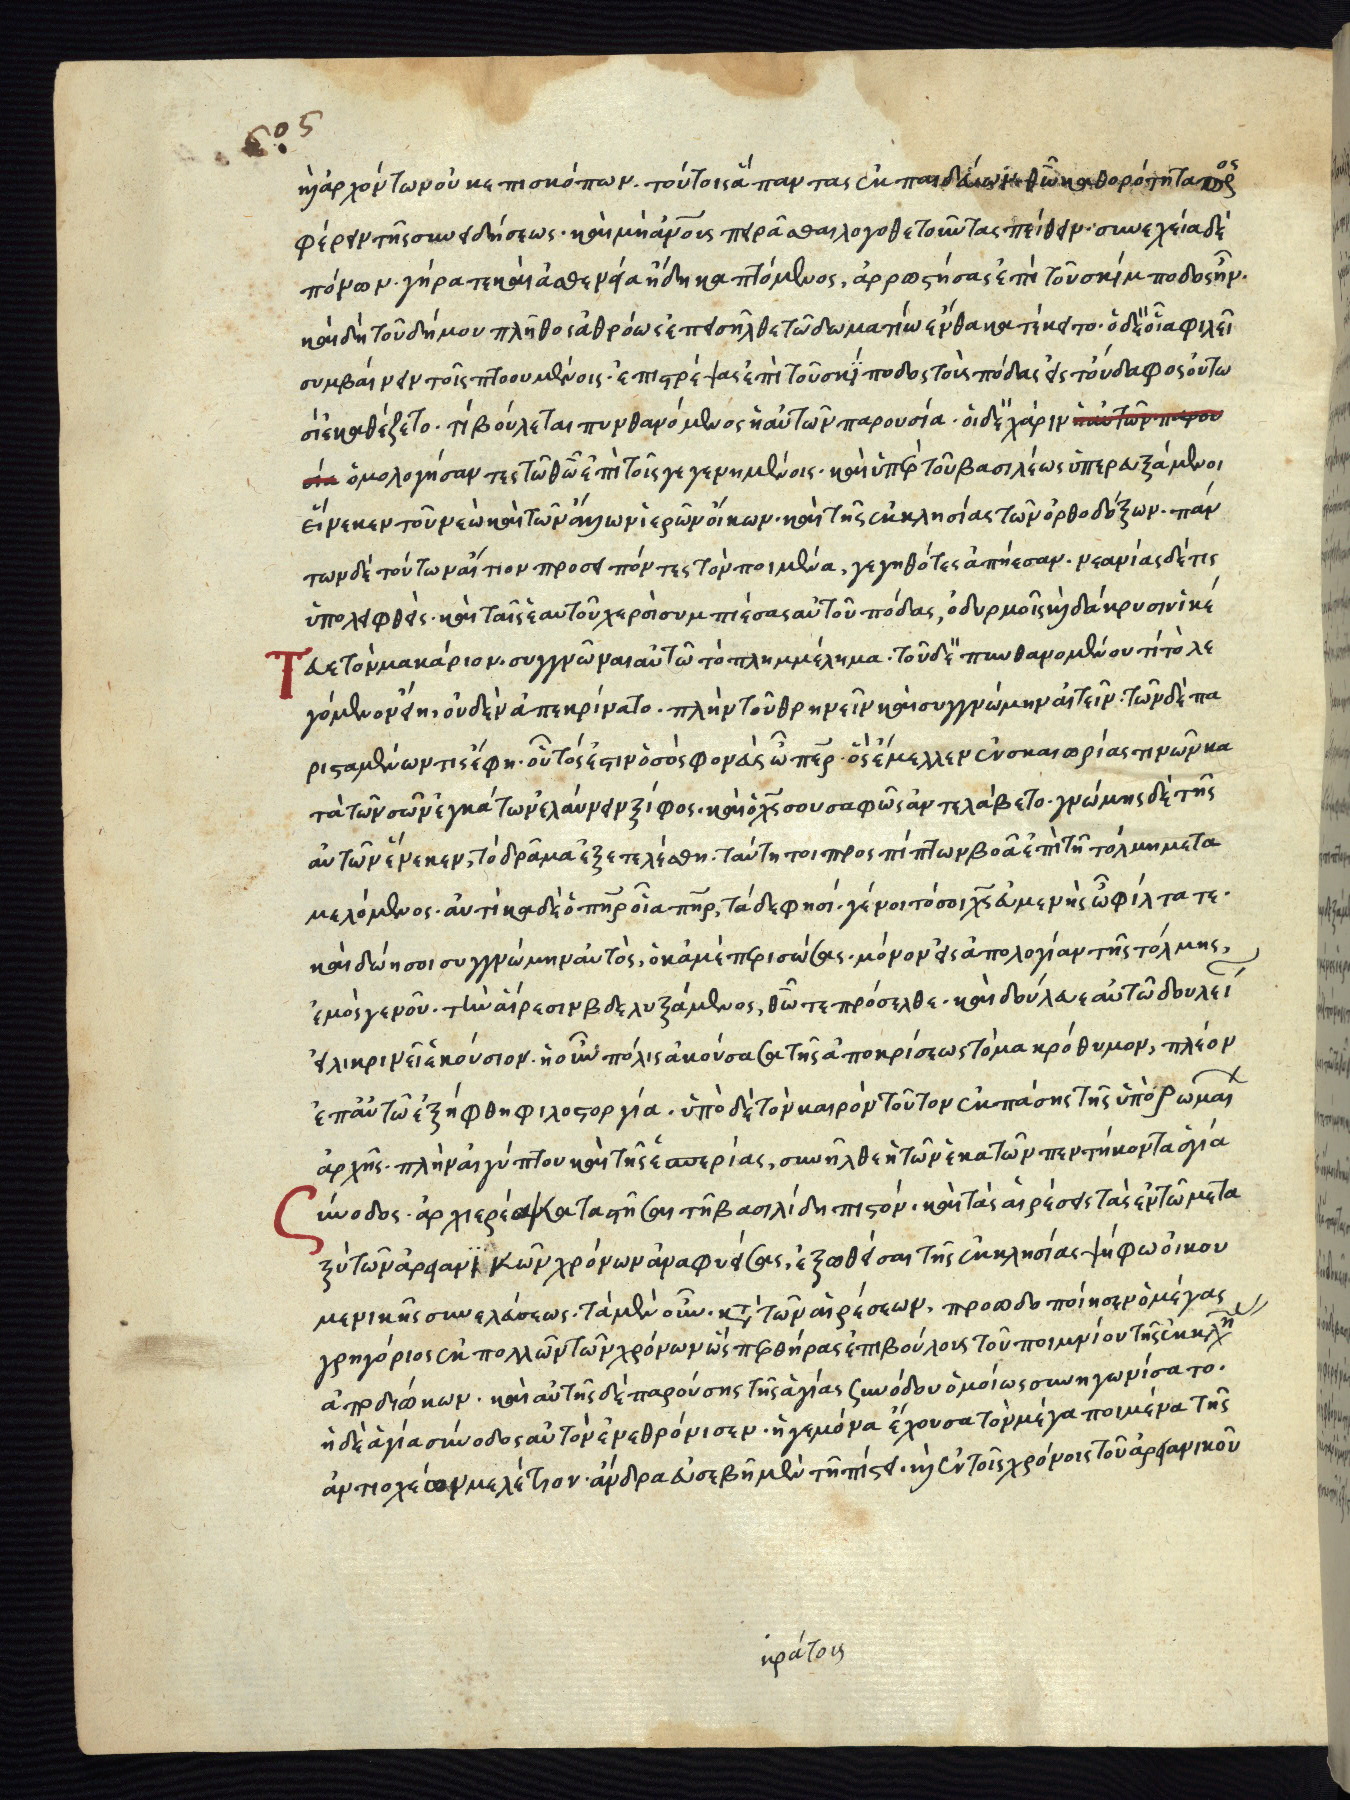 καὶ ἀρχόντων οὐκ ἐπισκόπων. τούτοις ἅπαντας ἐκ παιδείων θεῶ καθορότητα πρὸς
φέρειν τῆς συνειδήσεως. καὶ μὴ αὐτοὺς πειρᾶσθαι λογοθετοῦντας πείθειν. συνεχεία δὲ
πόνων. γήρα τε καὶ ἀσθενεία ἤδη καμπτόμενος, ἀρρωστήσας ἐπὶ τοῦ σκίμποδος ἦν.
καὶ δὴ τοῦ δήμου πλῆθος ἀθρόως ἐπεισῆλθε τῶ δωματίω ἔνθα κατέκειτο. ὁ δὲ οἷα φιλεῖ
συμβαίνειν τοῖς πτοουμένοις. ἐπιστρέψας ἐπὶ τοῦ σκίμποδος τοὺς πόδας εἰς τοὔδαφος οὑτω
σὶ ἐκαθέζετο. τί βούλεται πυνθανόμενος ἡ αὐτῶν παρουσία. οἱ δὲ χάριν ἡ αὐτῶν παρου
σία ὁμολογήσαντες τῶ θεῶ ἐπὶ τοῖς γεγενημένοις. καὶ ὑπὲρ τοῦ βασιλέως ὑπερευξάμενοι
εἵνεκεν τοῦ νεὼ καὶ τῶν ἄλλων ἱερῶν οἴκων. καὶ τῆς ἐκκλησίας τῶν ὀρθοδόξων. πάν
των δὲ τούτων αἴτιον προσειπόντες τὸν ποιμένα, γεγηθότες ἀπήεσαν. νεανίας δέ τις
ὑπολειφθείς. καὶ ταῖς ἑαυτοῦ χερσὶ συμπιέσας αὐτοῦ πόδας, ὀδυρμοῖς καὶ δάκρυσιν ἱκέ
Τευε τὸν μακάριον. συγγνῶναι αὐτῶ τὸ πλημμέλημα. τοῦ δὲ πυνθανομένου τί τὸ λε
γόμενον εἴη, οὐδὲν ἀπεκρίνατο. πλὴν τοῦ θρηνεῖν καὶ συγγνώμην αἰτεῖν. τῶν δὲ πα
ρισταμένων τις ἔφη. οὗτός ἐστιν ὁ σὸς φονεὺς ὦ πάτερ. ὃς ἔμελλεν ἐν σκαιωρίας τινῶν κα
τὰ τῶν σῶν ἐγκάτων ἐλαύνειν ξίφος. καὶ ὁ χς σου σαφῶς ἀντελάβετο. γνώμης δὲ τῆς
αὐτῶν ἕνεκεν, τὸ δρᾶμα ἐξετελέσθη. ταύτη τοι προσπίπτων βοᾶ ἐπὶ τῆ τόλμη μετα
μελόμενος. αὐτίκα δὲ ὁ πὴρ οἷα πὴρ, τάδε φησί. γένοιτό σοι χς εὐμενὴς ὦ φίλτατε.
καὶ δώη σοι συγγνώμην αὐτὸς, ὁ κἀμὲ περισώσας. μόνον εἰς ἀπολογίαν τῆς τόλμης,
ἐμὸς γενοῦ. τὴν αἵρεσιν βδελυξάμενος, θεῶ τε πρόσελθε. καὶ δούλευε αὐτῶ δουλεί
εἰλικρινεῖ ἑκούσιον. ἡ οὖν πόλις ἀκούσασα τῆς ἀποκρίσεως τὸ μακρόθυμον, πλέον
ἐπ αὐτῶ ἐξήφθη φιλοστοργία. ὑπὸ δὲ τὸν καιρὸν τοῦτον ἐκ πάσης τῆς ὑπὸ ῥωμαι
ἀρχῆς. πλὴν αἰγύπτου καὶ τῆς ἑσπερίας, συνῆλθε ἡ τῶν ἑκατὸν πεντήκοντα ἁγία
Σύνοδος. ἀρχιερέα καταστῆσαι τῆ βασιλίδι πιστόν. καὶ τὰς αἱρέσεις τὰς ἐν τῶ μετα
ξὺ τῶν ἀρειανικῶν χρόνων ἀναφυείσας, ἐξωθεῖσαι τῆς ἐκκλησίας ψήφω οἰκου
μενικῆς συνελάσεως. τὰ μὲν οὖν. κατὰ τῶν αἱρέσεων. προωδοποίησεν ὁ μέγας
γρηγόριος ἐκ πολλῶν τῶν χρόνων ὥσπερ θήρας ἐπιβούλους τοῦ ποιμνίου τῆς ἐκκλη
ἀποδιώκων. καὶ αὐτῆς δὲ παρούσης τῆς ἁγίας συνόδου ὁμοίως συνηγωνίσατο.
ἡ δὲ ἁγία σύνοδος αὐτὸν ἐνεθρόνισεν. ἡγεμόνα ἔχουσα τὸν μέγα ποιμένα τῆς
ἀντιοχέων μελέτιον. ἄνδρα εὐσεβῆ μὲν τῆ πίστει. καὶ ἐν τοῖς χρόνοις τοῦ ἀρειανικοῦ
κράτους